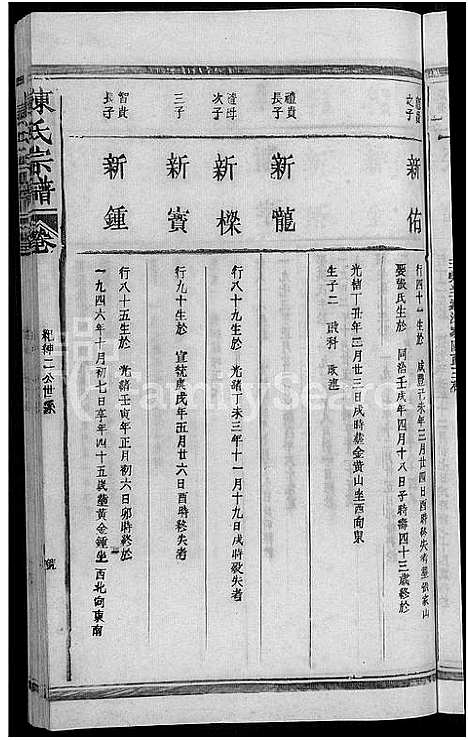 次子
新佑
行四十一生於 咸豐己未年三月廿四日酉時終失考葬張家山
娶張氏生於 同治壬戌年四月十八日子時壽四十三歲終於
光緒丁丑年三月廿三日戌時葬金黄山坐西向東
生子二
禮貴
長子
新龍
次子
新樑
行八十九生於 光緒丁未三年十一月十九日戌時歿失者
三子
新寳
行九十生於 宣統庚戌年五月廿六日酉時終失者
智貴
長子
新鍾
行八十五生於 光緒壬寅年正月初六日卯時終於
一九四六年十月初七日享年四十五歲葬黄金鍾坐西北向東南
陳氏宗譜
卷
紀紳二公世系
號
FamilySearch